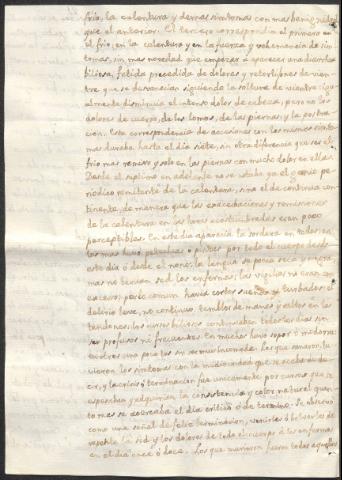 frio, la calentura y demas sintomas con mas benignidad
que el anterior. El tercero correspondia al primero en
el frio, en la calentura y en la fuerza y vehemencia de sin-
tomas, sin mas novedad que empezar á aparecer una diarrhea
biliosa, fetida precedida de dolores y retortijones de vien-
tre que se desvanecian siguiendo la soltura de vientre: igu-
almente disminuia el intenso dolor de cabeza, pero no los
dolores de cuerpo, de los lomos, de las piernas y la postra-
cion. Esta correspondencia de accesiones con los mismos sinto-
mas duraba hasta el dia siete, sin otra diferencia que ser el
frio mas remiso y solo en las piernas con mucho dolor en ellas.
Desde el septimo en adelante no se notaba ya el genio pe-
riodico remitente de la calentura, sino el de continua con-
tinente, de manera que las exacerbaciones y remisiones
de la calentura en las horas acostumbradas eran poco
perceptibles. En este dia aparecia la sordera en todos, en
los mas hubo petechias ó pintas por todo el cuerpo desde
este dia ó desde el nono; la lengua se ponia seca y negra,
mas no tenian sed los enfermos; las vigilias no eran con
exceso; pero comun havia cortos sueños y turbados: el
delirio leve, no continuo, temblor de manos y saltos en los
tendones; los cursos biliosos continuaban todos los dias sin
ser profusos ni frequentes. En muchos huvo sopor ó modorra:
sudores uno poco
vieron los sintomas con la misma
cir, y la crisis ó terminacion fue unicamente por cursos que se
espesaban y adquirian la consistencia y color natural quan-
to mas se acercaba el dia critico ó de termino. Se observó
como una señal de feliz terminacion, venirles ó bolverles de
repente la sed y los dolores de todo el cuerpo á los enfermos
en el dia once ó doce. Los que murieron fueron todos aquellos